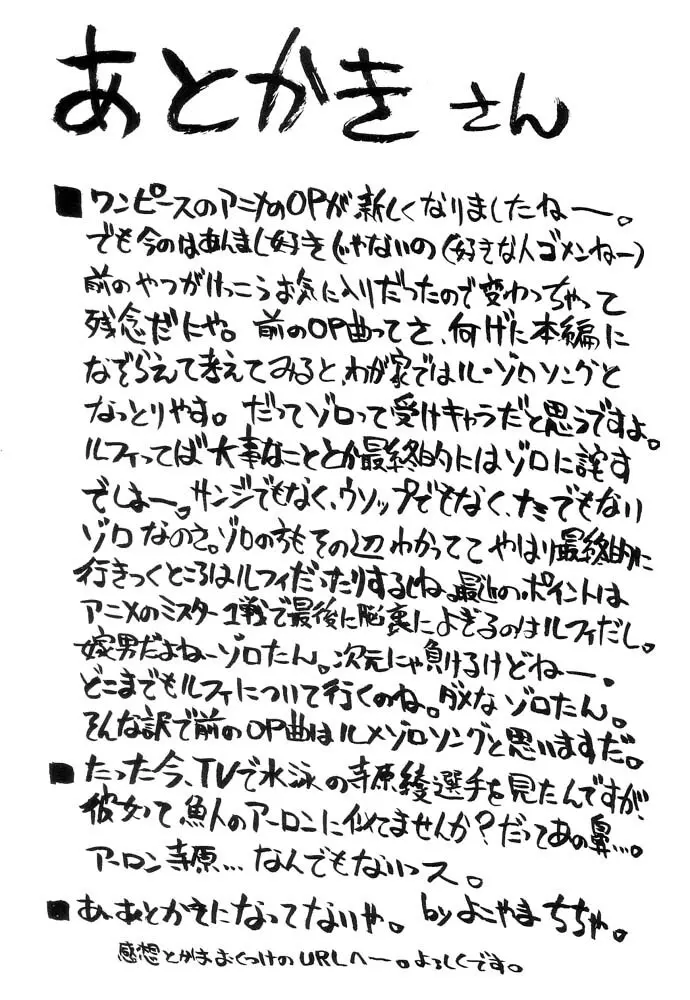 あとかき さん
■ ワンピースのアニメのOPが新しくなりましたねー。
でも今のはあんまし好きじゃないの(好きな人ゴメンねー)
前のやつがけっこうお気に入りだったので変わっちゃって
残念だにゃ。前のOP曲ってさ、何げに本編に
なぞらえて考えてみると、わが家ではル・ゾロソングと
なっとりやす。だってゾロって受けキャラだと思うですよ。
ルフィってば大事なこととか最終的にはゾロに託す
でしょー。サンジでもなく、ウソップでもなく、ナミでもない
ゾロなのさ。ゾロの方もその辺わかってて やはり最終的に
行きつくところはルフィだったりするしね。最近のポイントは
アニメのミスター1戦で最後に脳裏によぎるのはルフィだし。
嫁男だよねーゾロたん。次元にゃ負けるけどねー。
どこまでもルフィについて行くのね。ダメなゾロたん。
そんな訳で前のOP曲はル×ゾロソングと思いますだ。
■ たった今、TVで水泳の寺原綾選手を見たんですが、
彼女って魚人のアーロンに似てませんか?だってあの鼻…。
アーロン寺原…なんでもないっス。
■ あ、あとかきになってないや。 by よこやまちちゃ。
感想とかはおくつけのURLへー。よろしくです。